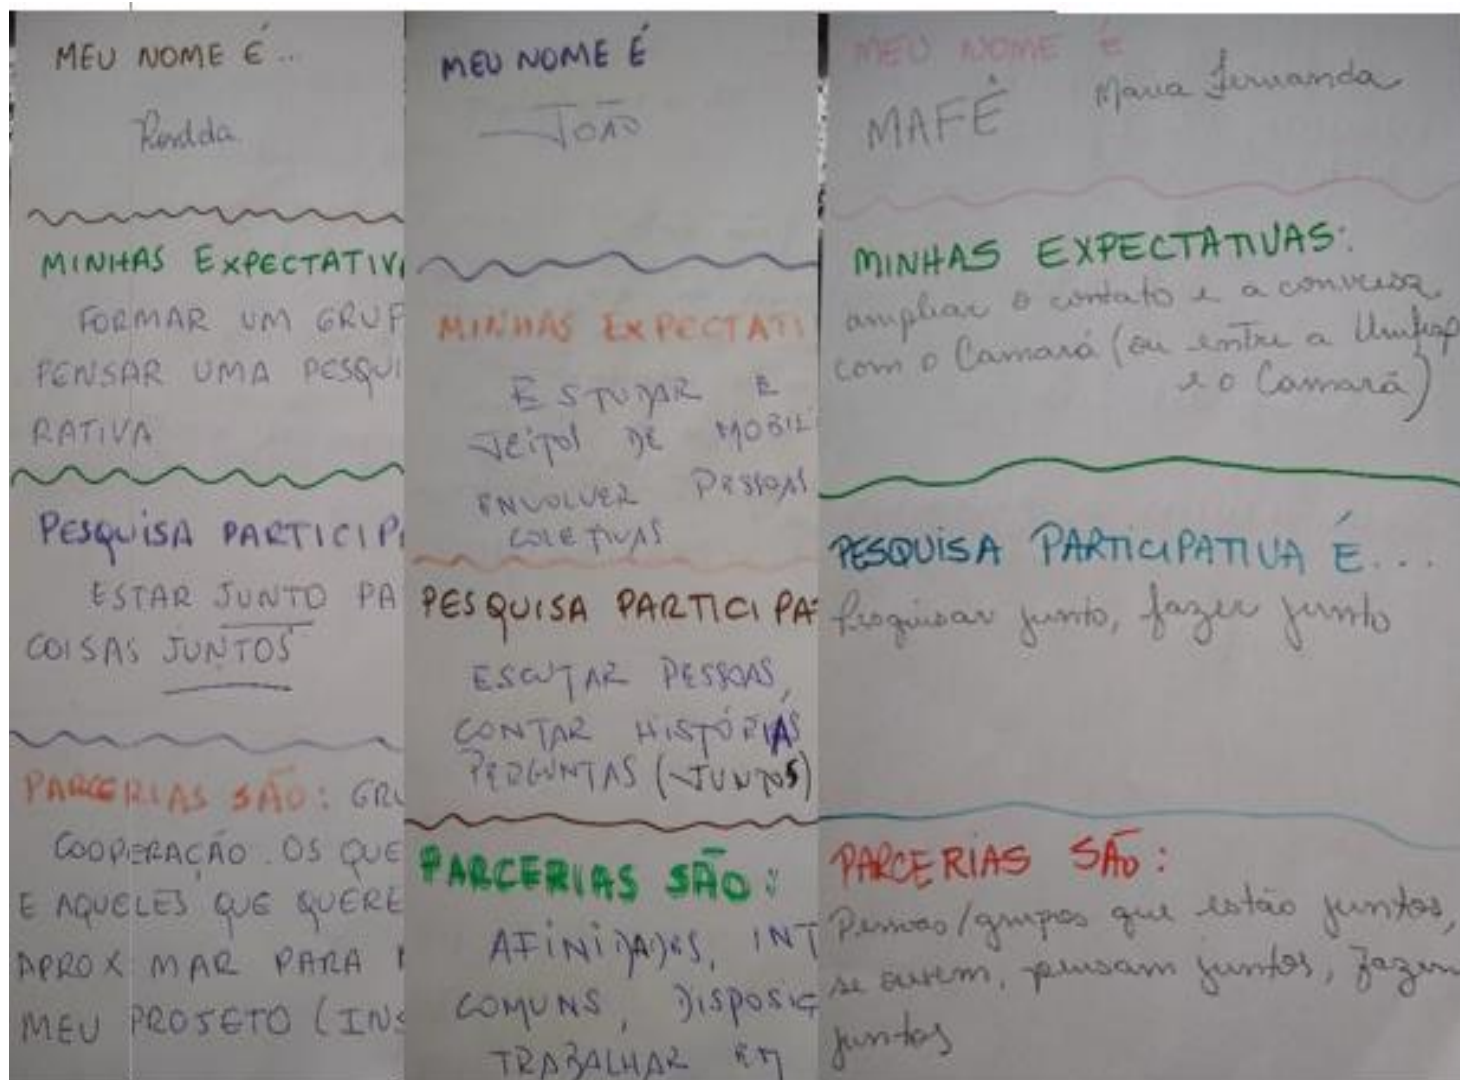 MEU NOME É...
MINHAS EXPECTATIV
FORMAR UM GRUP
PENSAR UMA PESQUI
RATIVA
PESQUISA PARTICIP
ESTAR JUNTO PA
COISAS JUNTOS
PARCERIAS SÃO: GRU
COOPERAÇÃO. OS QUE
E AQUELES QUE QUERE
APROX MAR PARA
MEU PROJETO (INS
MEU NOME É
JOÃO
MINHAS EXPECTATI
ESTUDAR E
JEITOS DE MOBILI
ENVOLVER PESSOAS
COLETIVAS
PESQUISA PARTICIPA
ESCUTAR PESSOAS,
CONTAR HISTÓRIAS
PERGUNTAS (JUNTOS)
PARCERIAS SÃO:
AFINIDADES, INT
COMUNS, DISPOSIÇ
TRABALHAR EM
MEU NOME É
MAFÊ Maria Fernanda
MINHAS EXPECTATIVAS:
ampliar o contato e a conversa
com o Camará (ou entre a Unifesp
e o Camará)
PESQUISA PARTICIPATIVA É...
Pesquisar junto, fazer junto
PARCERIAS SÃO:
Pessoas/grupos que estão juntos,
se ouvem, pensam juntos, fazem
juntos